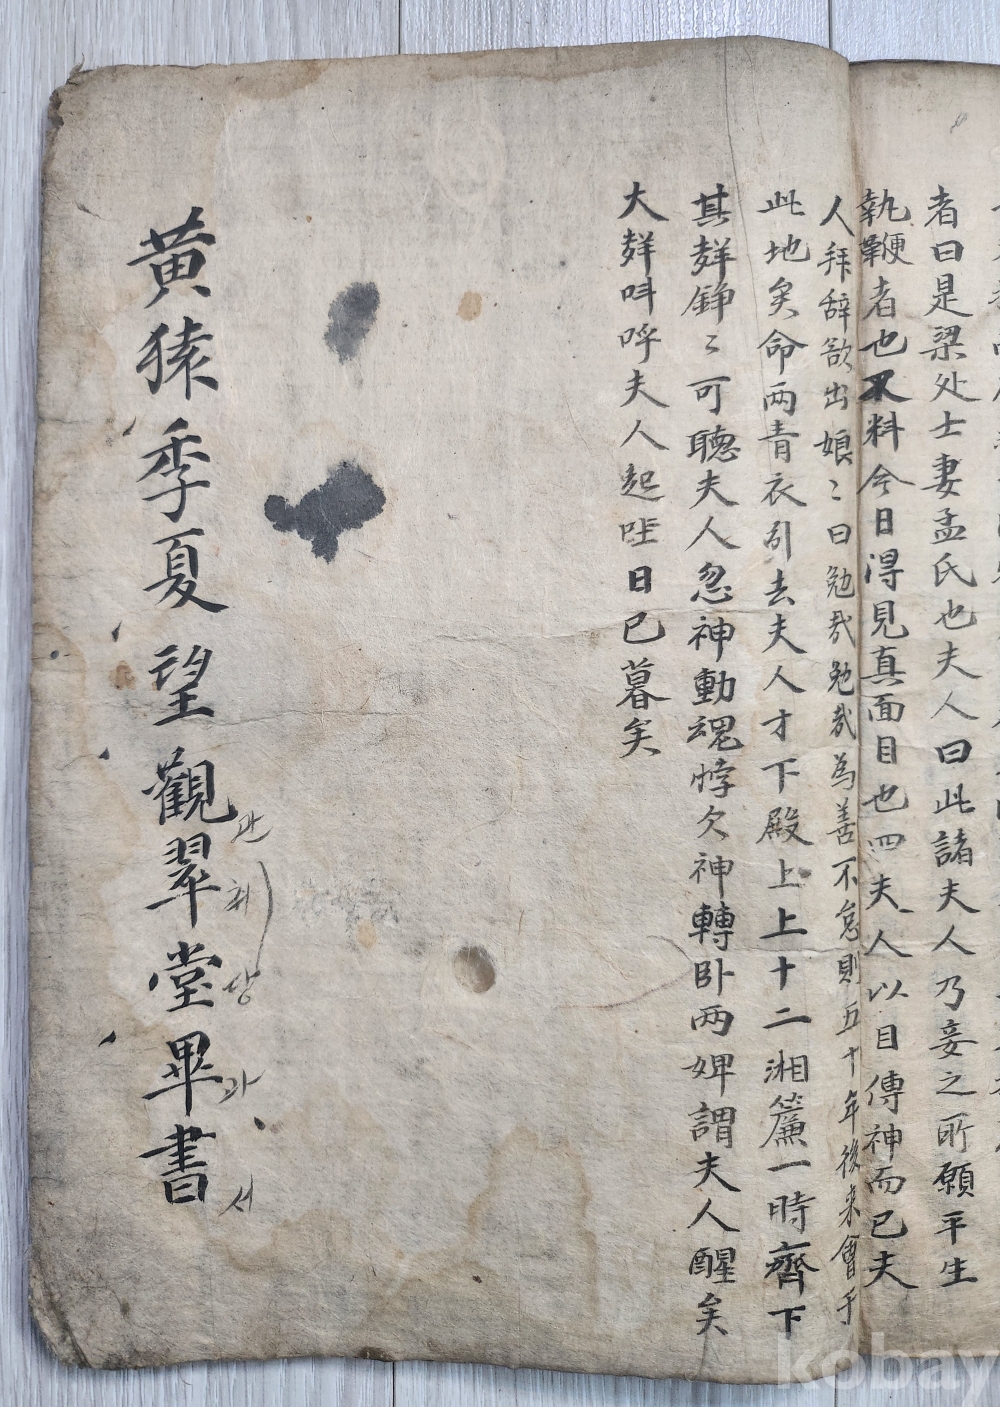 者曰是梁处士妻孟氏也夫人曰此諸夫人乃妾之所願平生
執鞭者也不料今日淂見真面目也四夫人以目傳神而已夫
人拜辞欲出娘〻曰勉哉勉哉為善不怠則五十年後来會于
此地矣命両青衣引去夫人才下殿上上十二湘簾一時齊下
其䍧錚〻可聽夫人忽神動魂悸欠神轉卧两婢謂夫人醒矣
大䍧呌呼夫人起唑日已暮矣
黄猿季夏望觀翠堂畢書
관취당
서
kobay